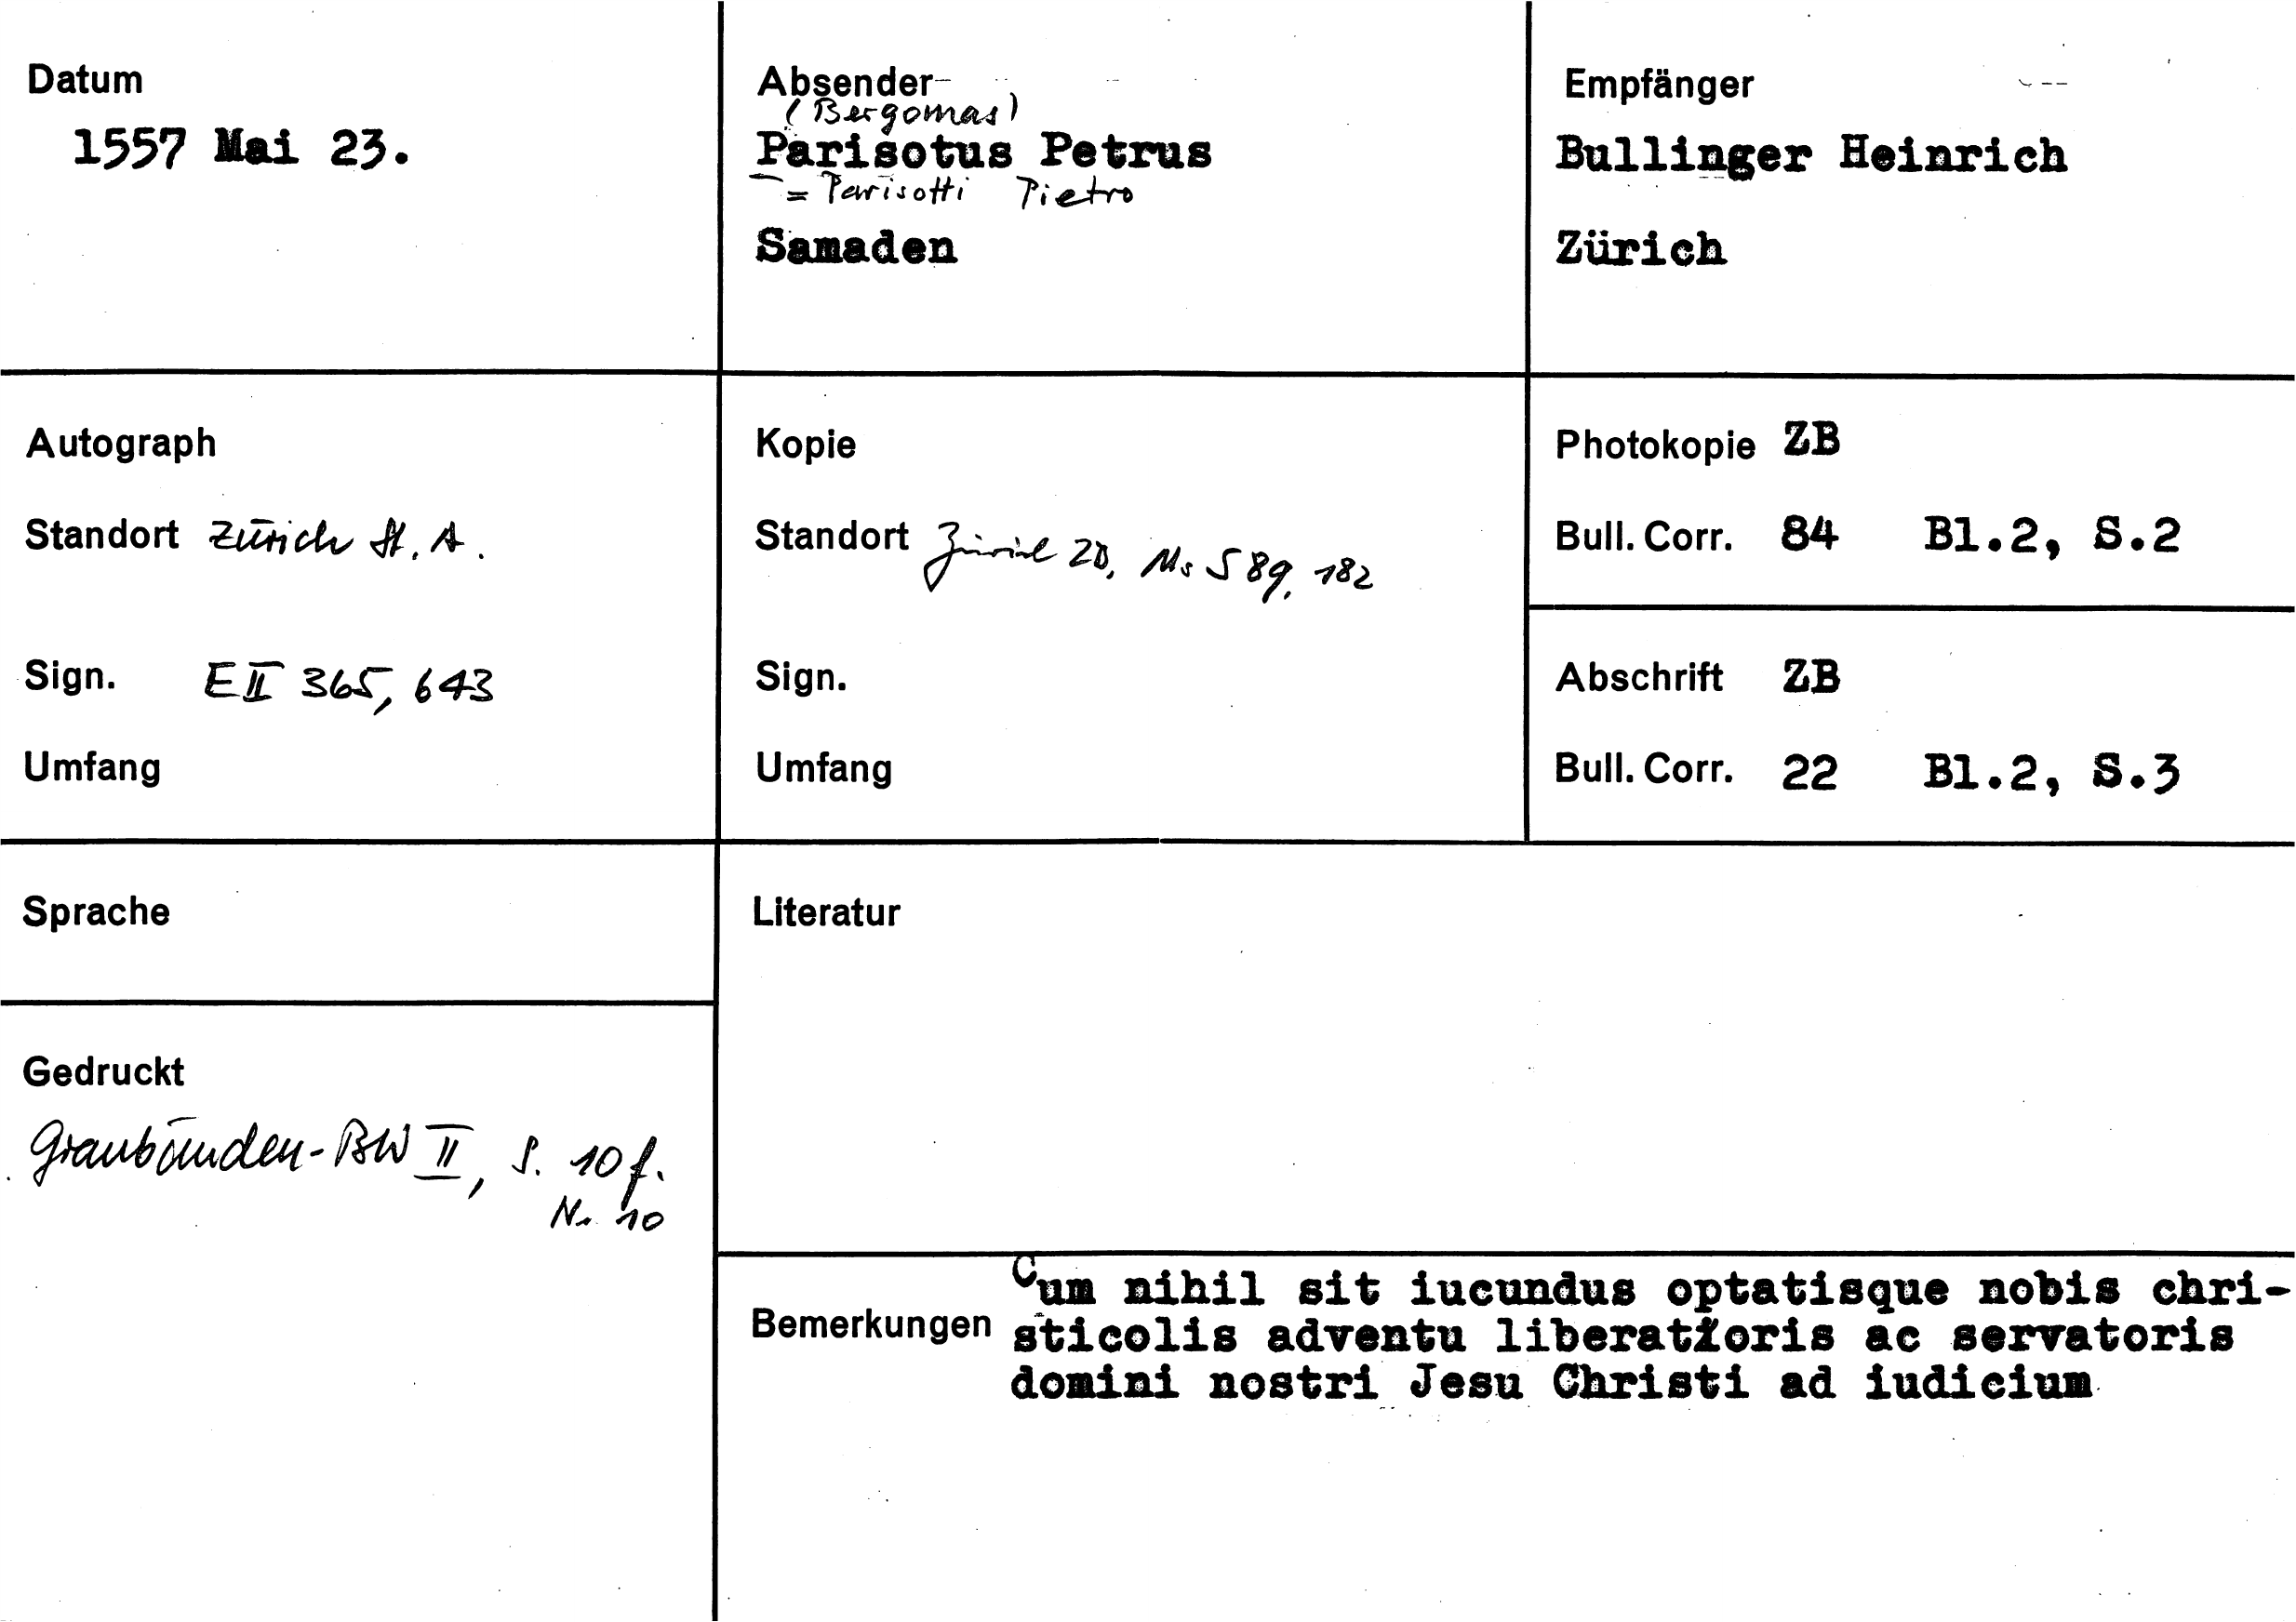 Datum
1557 Mai 23.
Absender
(Bergomas)
Parisotus Petrus
= Parisotti Pietro
Samaden
Empfänger
Bullinger Heinrich
Zürich
Autograph
Standort Zürich St. A.
Sign. E II 365, 643
Umfang
Kopie
Standort Zürich ZB, Ms S 89, 182
Sign.
Umfang
Photokopie ZB
Bull. Corr. 84 Bl.2, S.2
Abschrift ZB
Bull. Corr. 22 Bl.2, S.3
Sprache
Gedruckt
Graubünden-BW II, S. 10 f.
Nr. 10
Literatur
Bemerkungen
Cum nihil sit iucundus optatisque nobis chri-
sticolis adventu liberatoris ac servatoris
domini nostri Jesu Christi ad iudicium